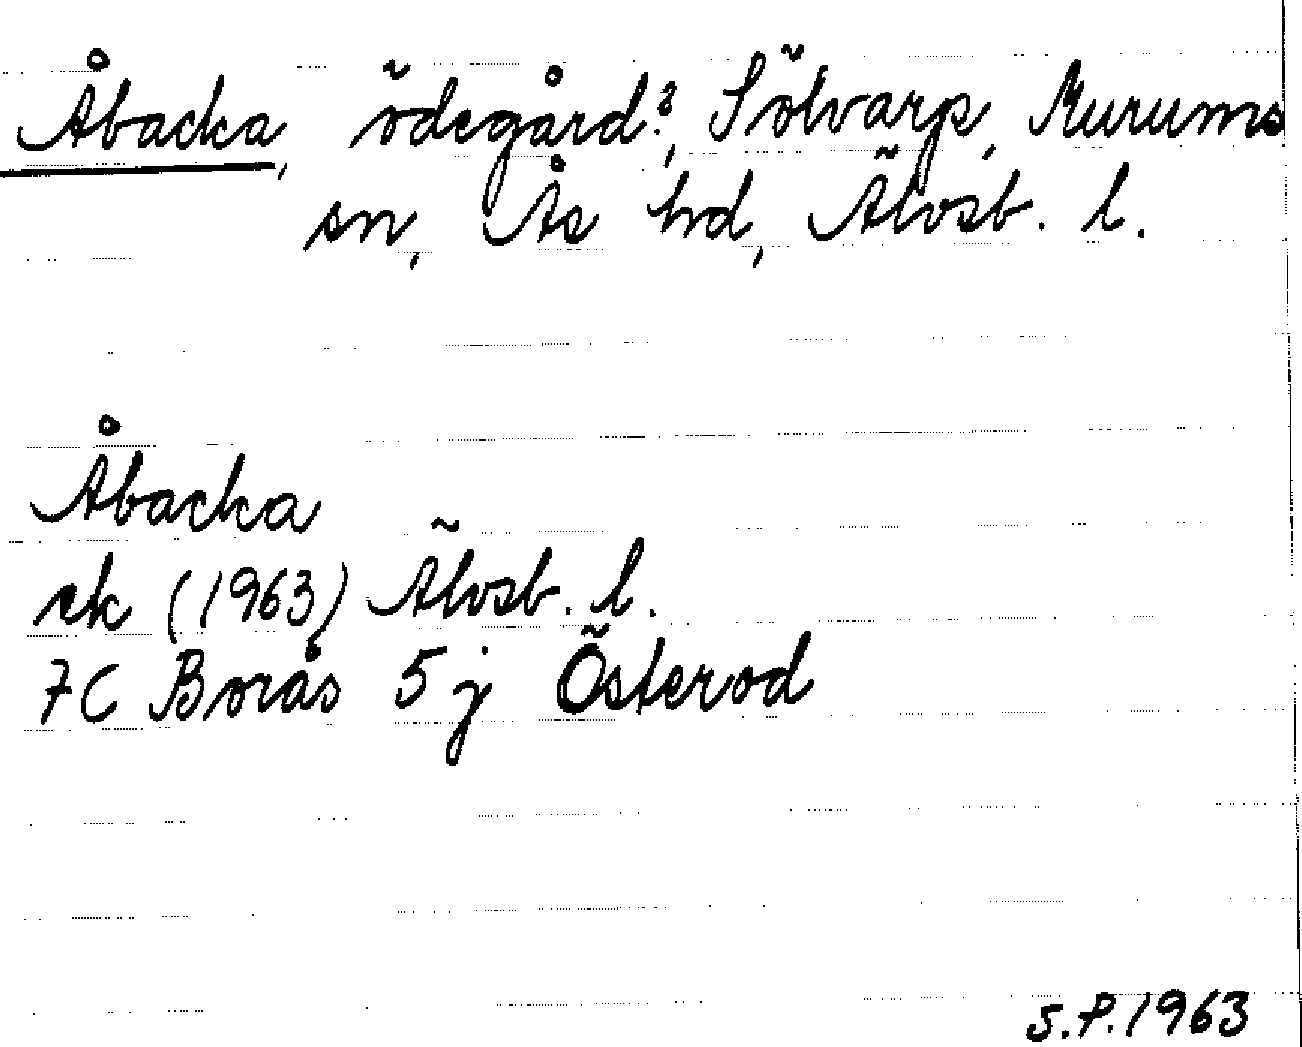 Åbacka, ödegård?, Sölvarp, Murums
sn, Ås hd, Älvsb. l.
Åbacka
ek (1963) Älvsb. l.
7C Borås 5j Österod
S.P. 1963